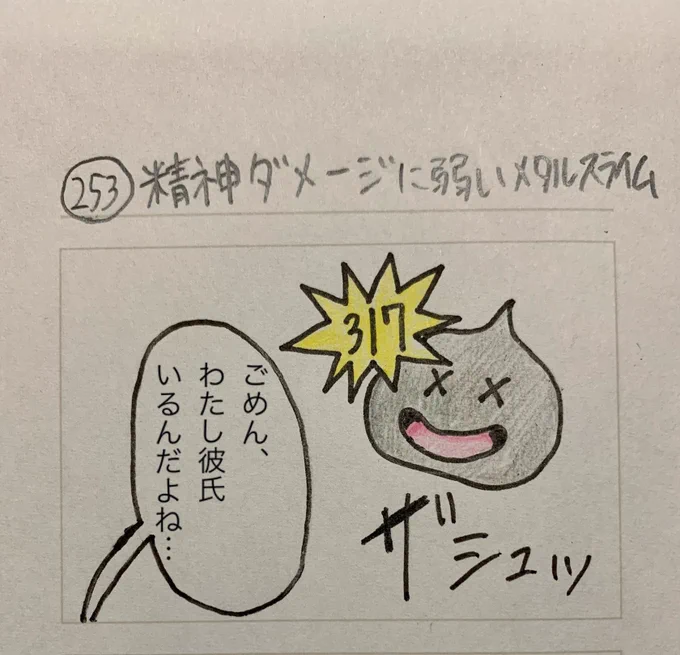 253 精神ダメージに弱いメタルスライム
317
ごめん、
わたし彼氏
いるんだよね…
ザシュッ